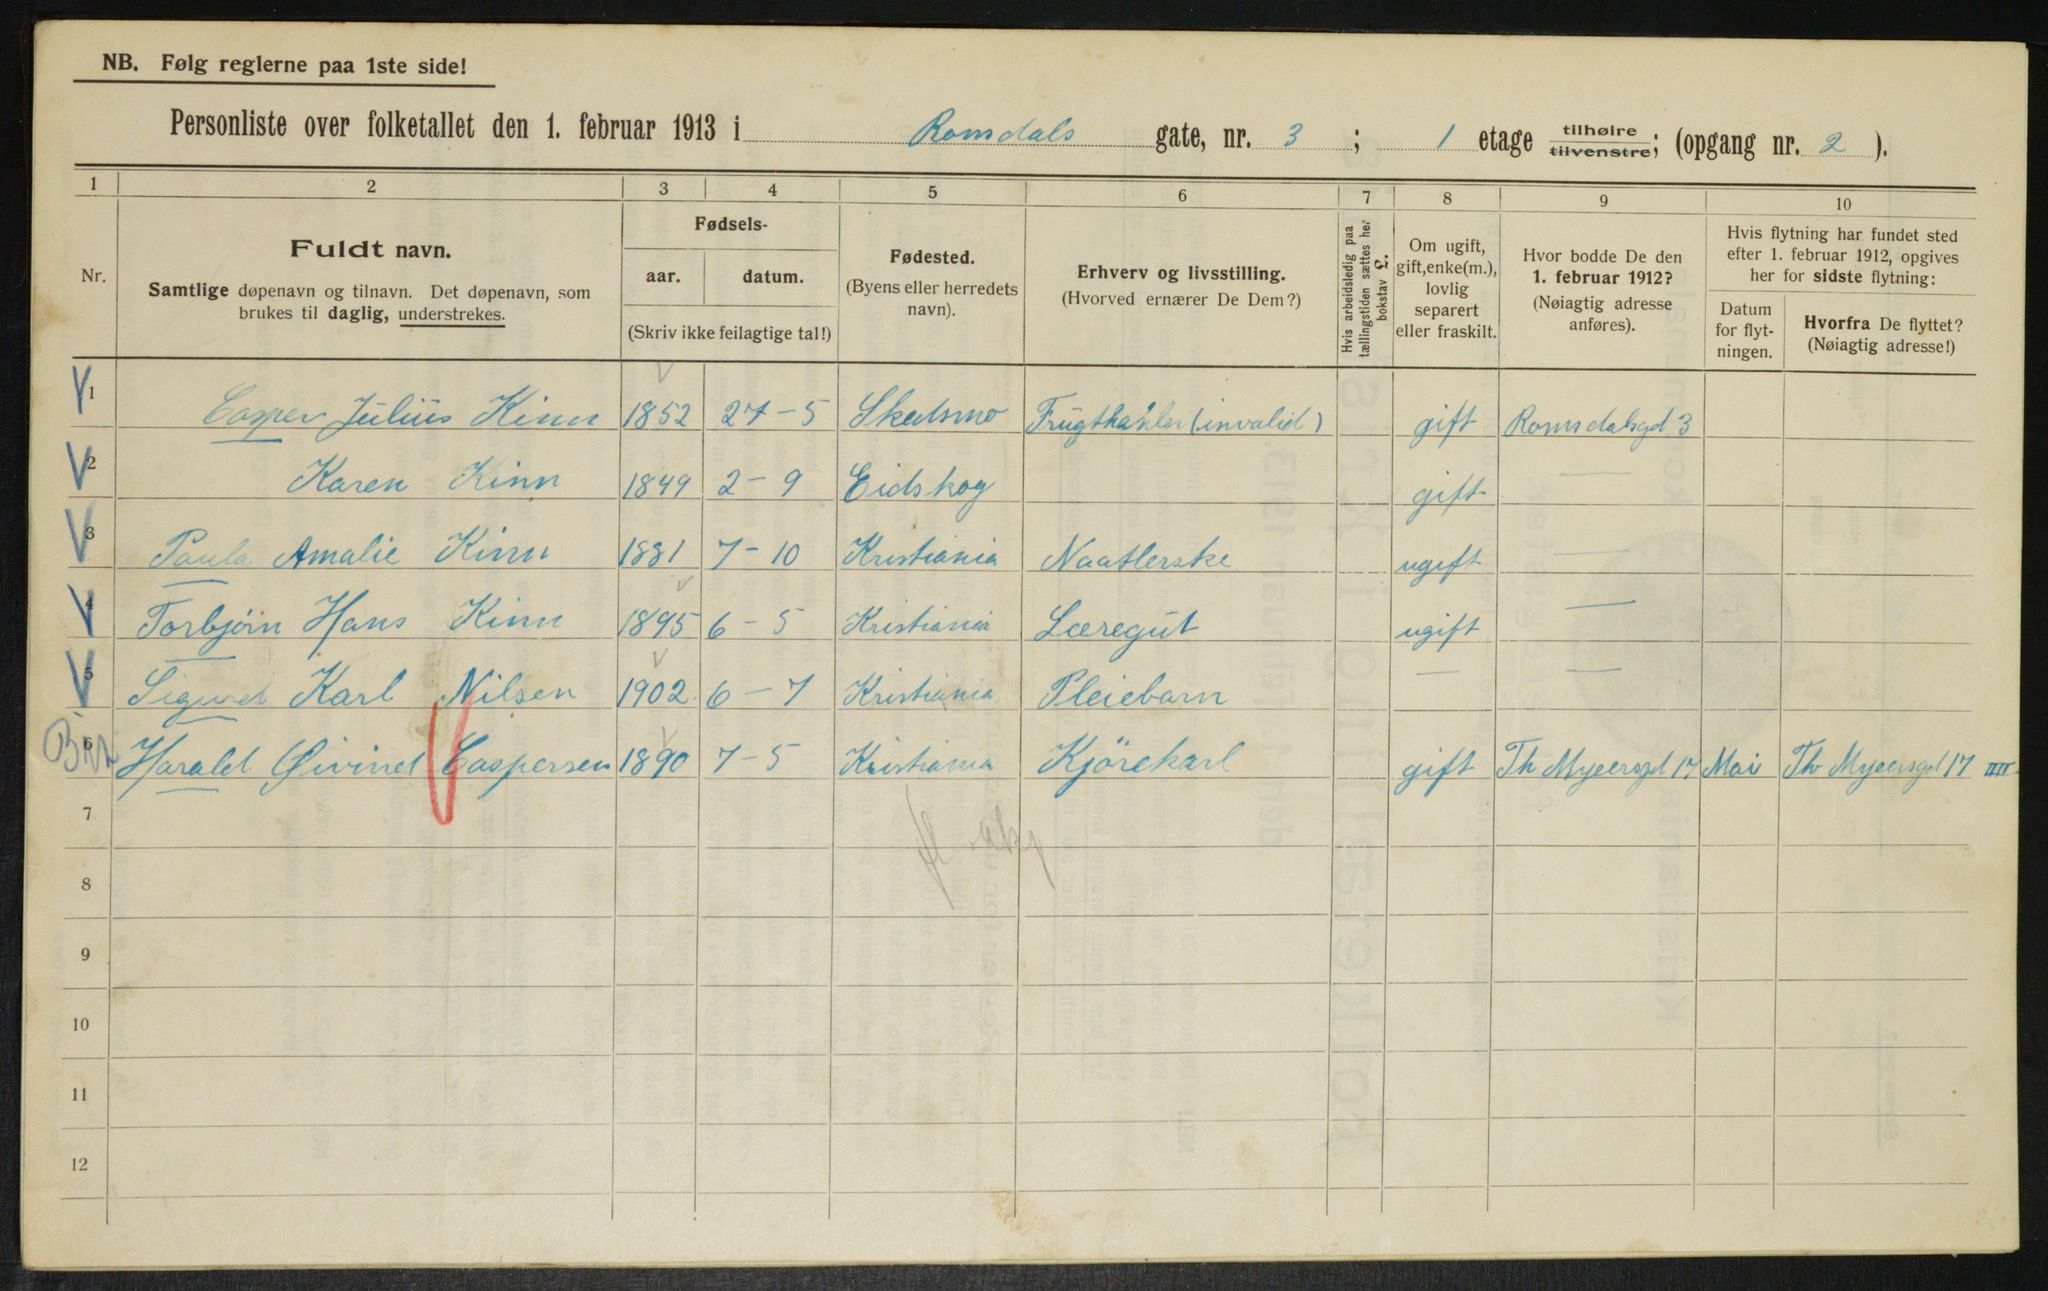 NB. Følg reglerne paa 1ste side!
Personliste over folketallet den 1. februar 1913 i Romsdals gate, nr. 3 ; 1 etage tilhøire tilvenstre; (opgang nr. 2 ).
1 2 3 4 5 6 7 8 9 10
Nr.
Fuldt navn.
Samtlige døpenavn og tilnavn. Det døpenavn, som
brukes til daglig, understrekes.
Fødsels-
aar. datum.
(Skriv ikke feilagtige tal!)
Fødested.
(Byens eller herredets
navn).
Erhverv og livsstilling.
(Hvorved ernærer De Dem?)
Hvis arbeidsledig paa
tællingstiden sættes her
bokstav L.
Om ugift,
gift, enke(m.),
lovlig
separert
eller fraskilt.
Hvor bodde De den
1. februar 1912?
(Nøiagtig adresse
anføres).
Hvis flytning har fundet sted
efter 1. februar 1912, opgives
her for sidste flytning:
Datum
for flyt-
ningen.
Hvorfra De flyttet?
(Nøiagtig adresse!)
1 Casper Julius Kinn 1852 27-5 Skedsmo (invalid) gift Romsdalsgd 3
2 Karen Kinn 1849 2-9 Eidskog gift —
3 Paula Amalie Kinn 1881 7-10 Kristiania Naatlerske ugift —
4 Torbjørn Hans Kinn 1895 6-5 Kristiania Læregut ugift —
5 Sigurd Karl Nilsen 1902 6-7 Kristiania Pleiebarn — —
6 Harald Øivind Caspersen 1890 7-5 Kristiania Kjörekarl gift Th Myeersgd 17 Mai Th Myeersgd 17
7
8
9
10
11
12